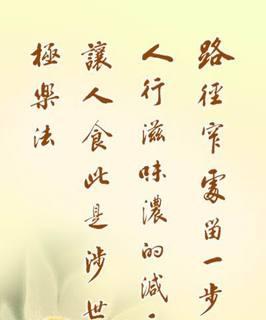 路徑窄處留一步
人行滋味濃的減
讓人食此是涉世
極樂法